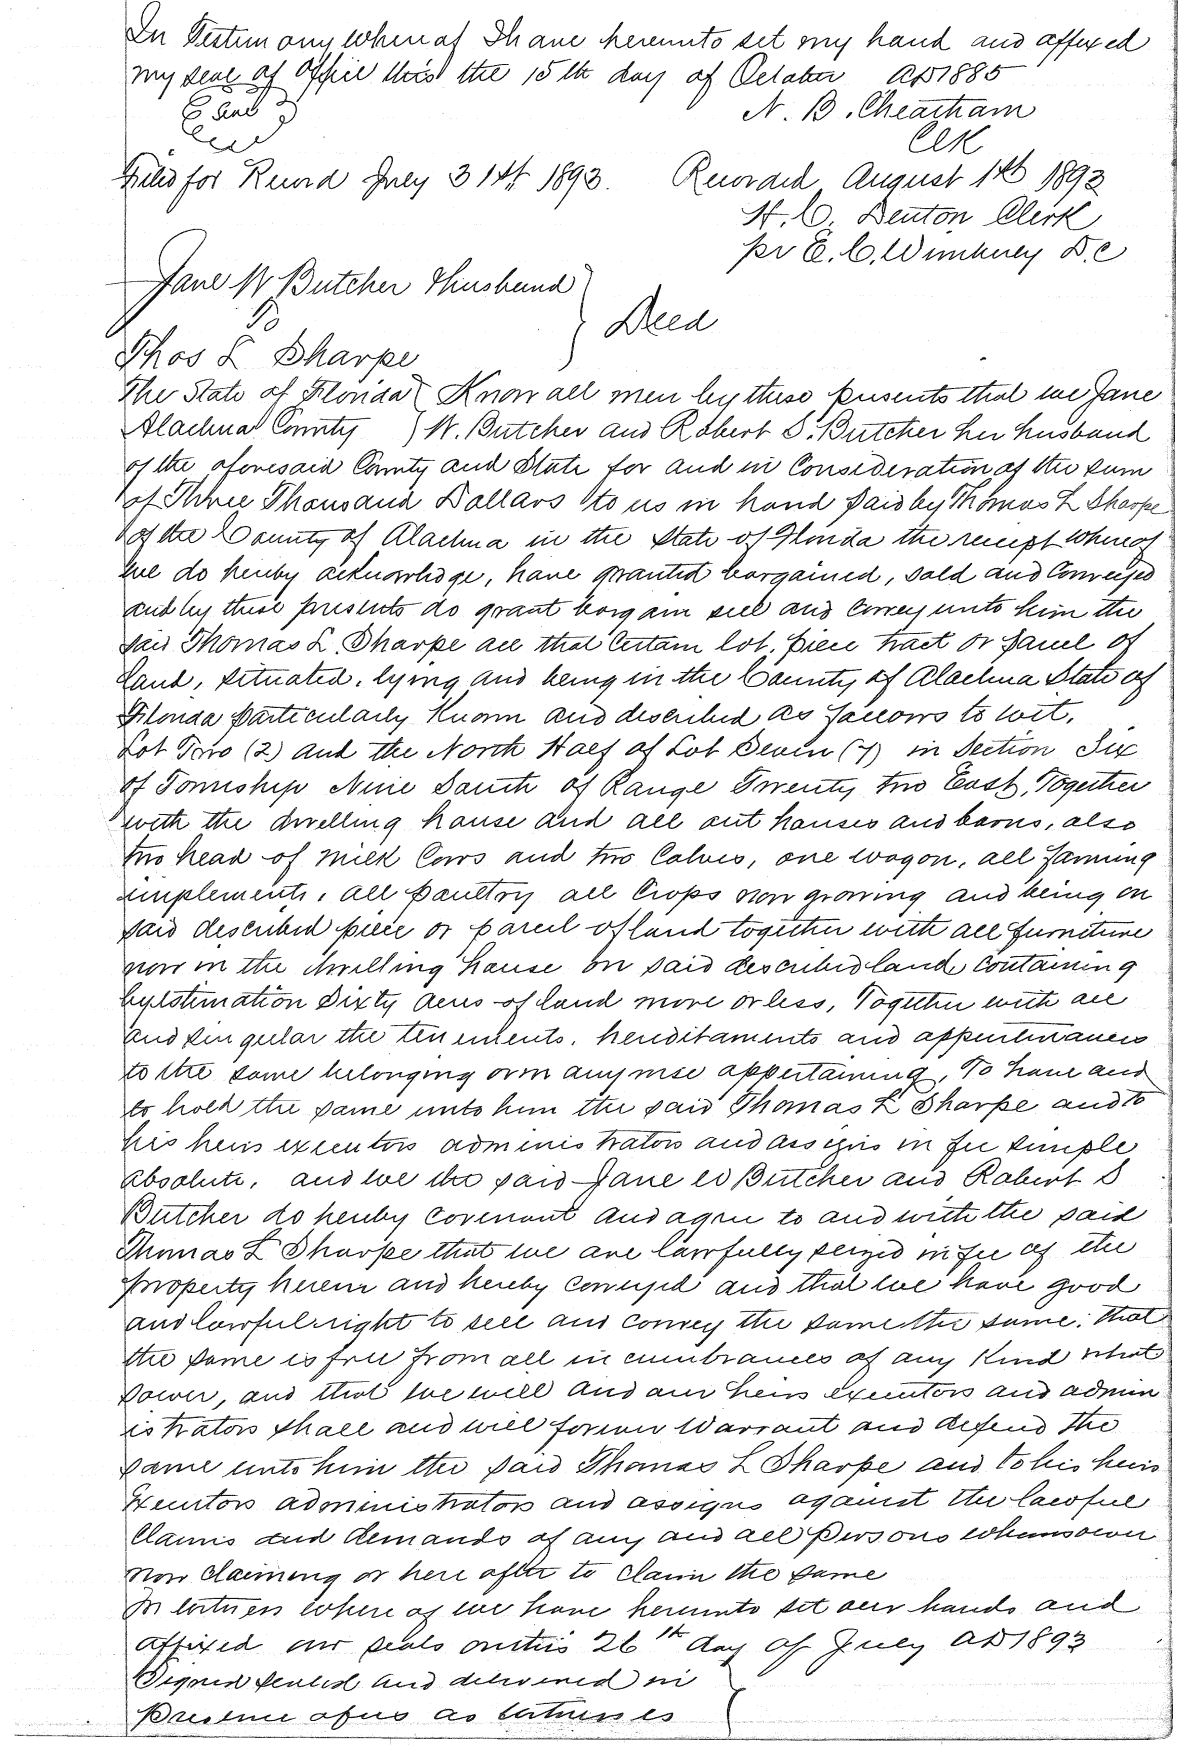 In Testimony whereof I have hereunto set my hand and affixed
my seal of office this the 15th day of October AD 1885
Seal
N. B. Cheatham
Clk
Filed for Record July 31st 1893. Recorded August 1st 1893
H. C. Denton Clerk
pr E. C. D.C
Jane W Butcher & husband
To
Deed
Thos L Sharpe
The State of Florida Know all men by these presents that we Jane
Alachua County W. Butcher and Robert S. Butcher her husband
of the aforesaid County and State for and in Consideration of the sum
of Three Thousand Dollars to us in hand paid by Thomas L Sharpe
of the County of Alachua in the State of Florida the receipt whereof
we do hereby acknowledge, have granted bargained, sold and Conveyed
and by these presents do grant bargain sell and Convey unto him the
said Thomas L. Sharpe all that Certain lot, piece tract or parcel of
land, situated, lying and being in the County of Alachua State of
Florida particularly Known and described as follows to wit.
Lot Two (2) and the North Half of Lot Seven (7) in Section Six
of Township Nine South of Range Twenty two East, Together
with the dwelling house and all out houses and barns, also
two head of milk Cows and two Calves, one wagon, all farming
implements, all poultry all Crops now growing and being on
said described piece or parcel of land together with all furniture
now in the dwelling house on said described land Containing
by estimation Sixty acres of land more or less, Together with all
and singular the tenements, hereditaments and appurtenances
to the same belonging or in anywise appertaining, To have and
to hold the same unto him the said Thomas L Sharpe and to
his heirs executors administrators and assigns in fee simple
absolute, and we the said Jane W Butcher and Robert S
Butcher do hereby Covenant and agree to and with the said
Thomas L Sharpe that we are lawfully seized in fee of the
property herein and hereby Conveyed and that we have good
and lawful right to sell and convey the same the same; that
the same is free from all incumbrances of any Kind what
soever, and that we will and our heirs executors and admin
istrators shall and will forever Warrant and defend the
same unto him the said Thomas L Sharpe and to his heirs
Executors administrators and assigns against the lawful
Claims and demands of any and all persons whomsoever
now claiming or here after to claim the same
In witness where of we have hereunto set our hands and
affixed our seals on this 26th day of July AD 1893
Signed sealed and delivered in
Presence of us as witnesses